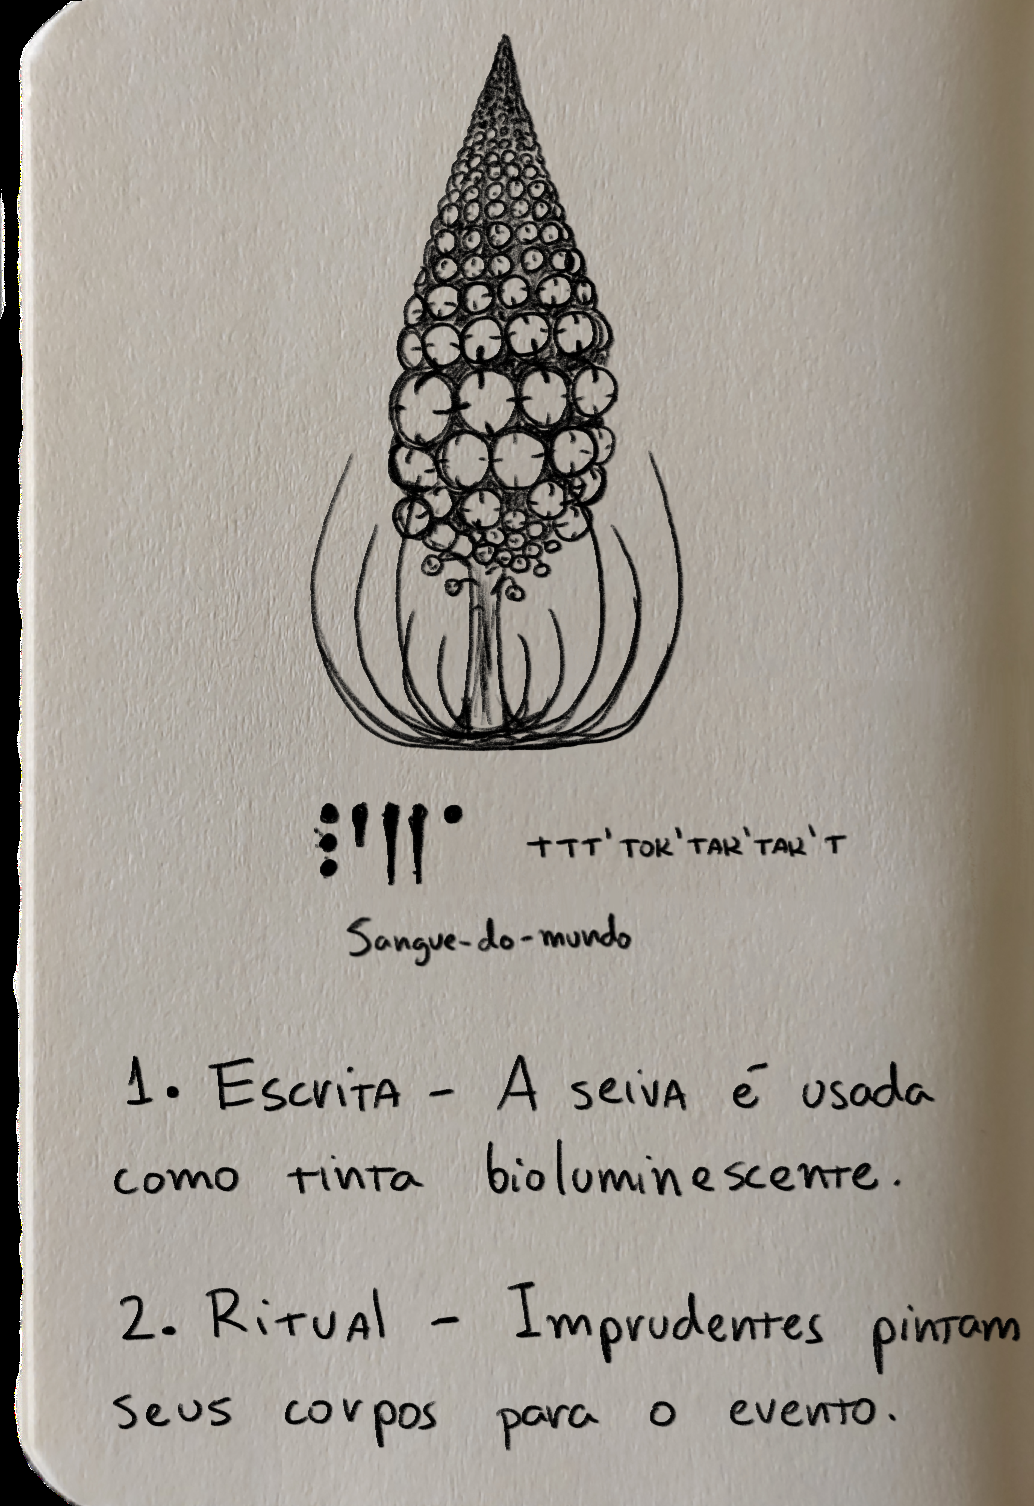 TTT'TOK'TAK'TAK'T
Sangue-do-mundo
1. Escrita - A seiva é usada
como tinta bioluminescente.
2. Ritual - Imprudentes pintam
seus corpos para o evento.